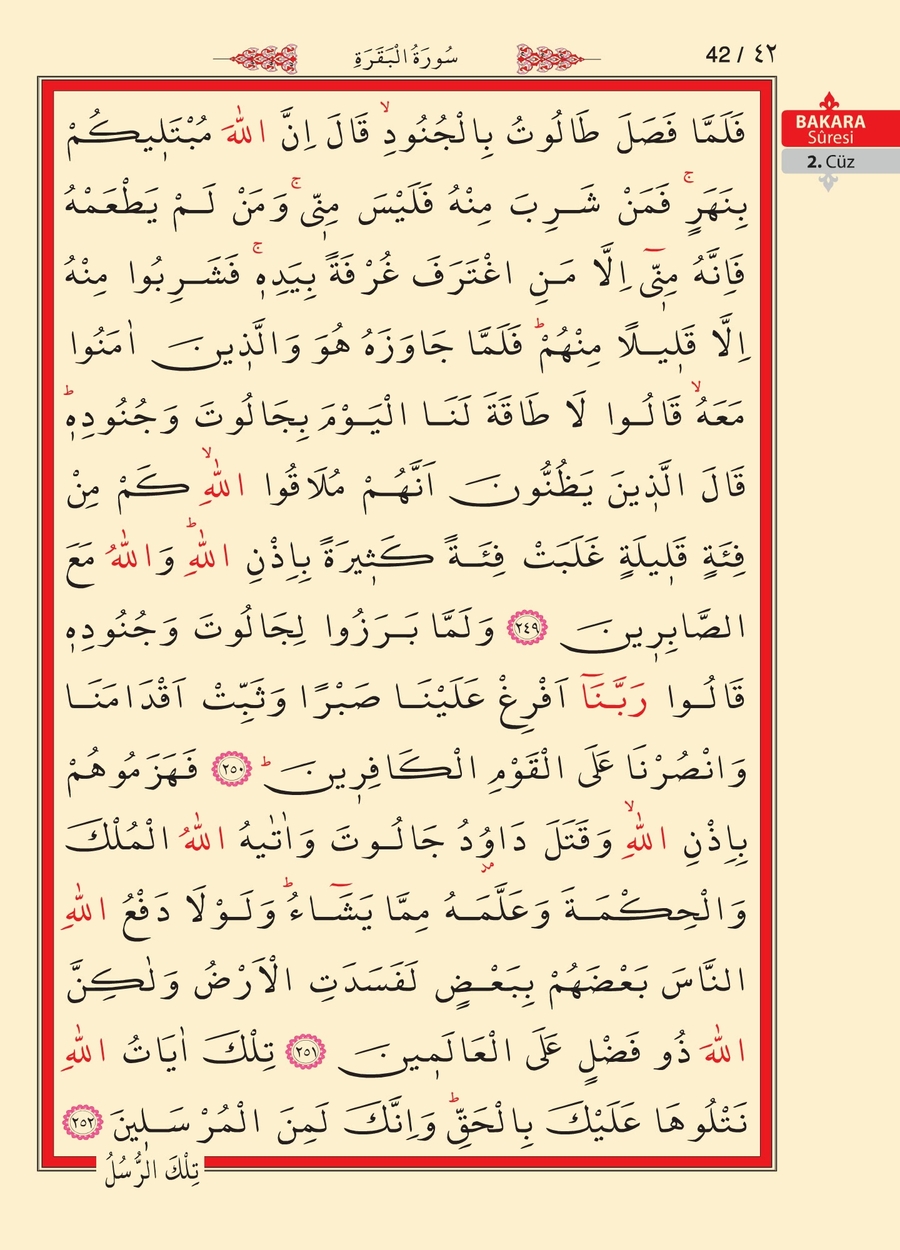 42 / ٤٢
سُورَةُ الْبَقَرَةِ
BAKARA
Sûresi
2. Cüz
فَلَمَّا فَصَلَ طَالُوتُ بِالْجُنُودِۙ قَالَ اِنَّ اللّٰهَ مُبْتَلٖيكُمْ
بِنَهَرٍۚ فَمَنْ شَرِبَ مِنْهُ فَلَيْسَ مِنّٖيۚ وَمَنْ لَمْ يَطْعَمْهُ
فَاِنَّهُ مِنّٖٓي اِلَّا مَنِ اغْتَرَفَ غُرْفَةً بِيَدِهٖۚ فَشَرِبُوا مِنْهُ
اِلَّا قَلٖيلًا مِنْهُمْؕ فَلَمَّا جَاوَزَهُ هُوَ وَالَّذٖينَ اٰمَنُوا
مَعَهُۙ قَالُوا لَا طَاقَةَ لَنَا الْيَوْمَ بِجَالُوتَ وَجُنُودِهٖؕ
قَالَ الَّذٖينَ يَظُنُّونَ اَنَّهُمْ مُلَاقُوا اللّٰهِۙ كَمْ مِنْ
فِئَةٍ قَلٖيلَةٍ غَلَبَتْ فِئَةً كَثٖيرَةً بِاِذْنِ اللّٰهِؕ وَاللّٰهُ مَعَ
الصَّابِرٖينَ ﴿٢٤٩﴾ وَلَمَّا بَرَزُوا لِجَالُوتَ وَجُنُودِهٖ
قَالُوا رَبَّنَٓا اَفْرِغْ عَلَيْنَا صَبْرًا وَثَبِّتْ اَقْدَامَنَا
وَانْصُرْنَا عَلَى الْقَوْمِ الْكَافِرٖينَؕ ﴿٢٥٠﴾ فَهَزَمُوهُمْ
بِاِذْنِ اللّٰهِۙ وَقَتَلَ دَاوُ۫دُ جَالُوتَ وَاٰتٰيهُ اللّٰهُ الْمُلْكَ
وَالْحِكْمَةَ وَعَلَّمَهُ مِمَّا يَشَٓاءُؕ وَلَوْلَا دَفْعُ اللّٰهِ
النَّاسَ بَعْضَهُمْ بِبَعْضٍ لَفَسَدَتِ الْاَرْضُ وَلٰكِنَّ
اللّٰهَ ذُو فَضْلٍ عَلَى الْعَالَمٖينَ ﴿٢٥١﴾ تِلْكَ اٰيَاتُ اللّٰهِ
نَتْلُوهَا عَلَيْكَ بِالْحَقِّؕ وَاِنَّكَ لَمِنَ الْمُرْسَلٖينَ ﴿٢٥٢﴾
تِلْكَ الرُّسُلُ